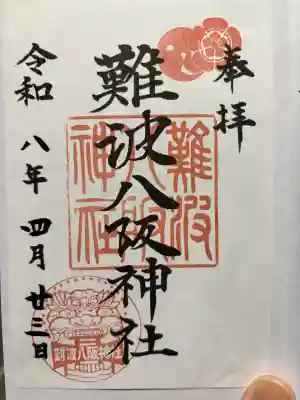 奉拝
難波八阪神社
令和八年四月廿三日
難波
八阪
神社
難波八阪神社